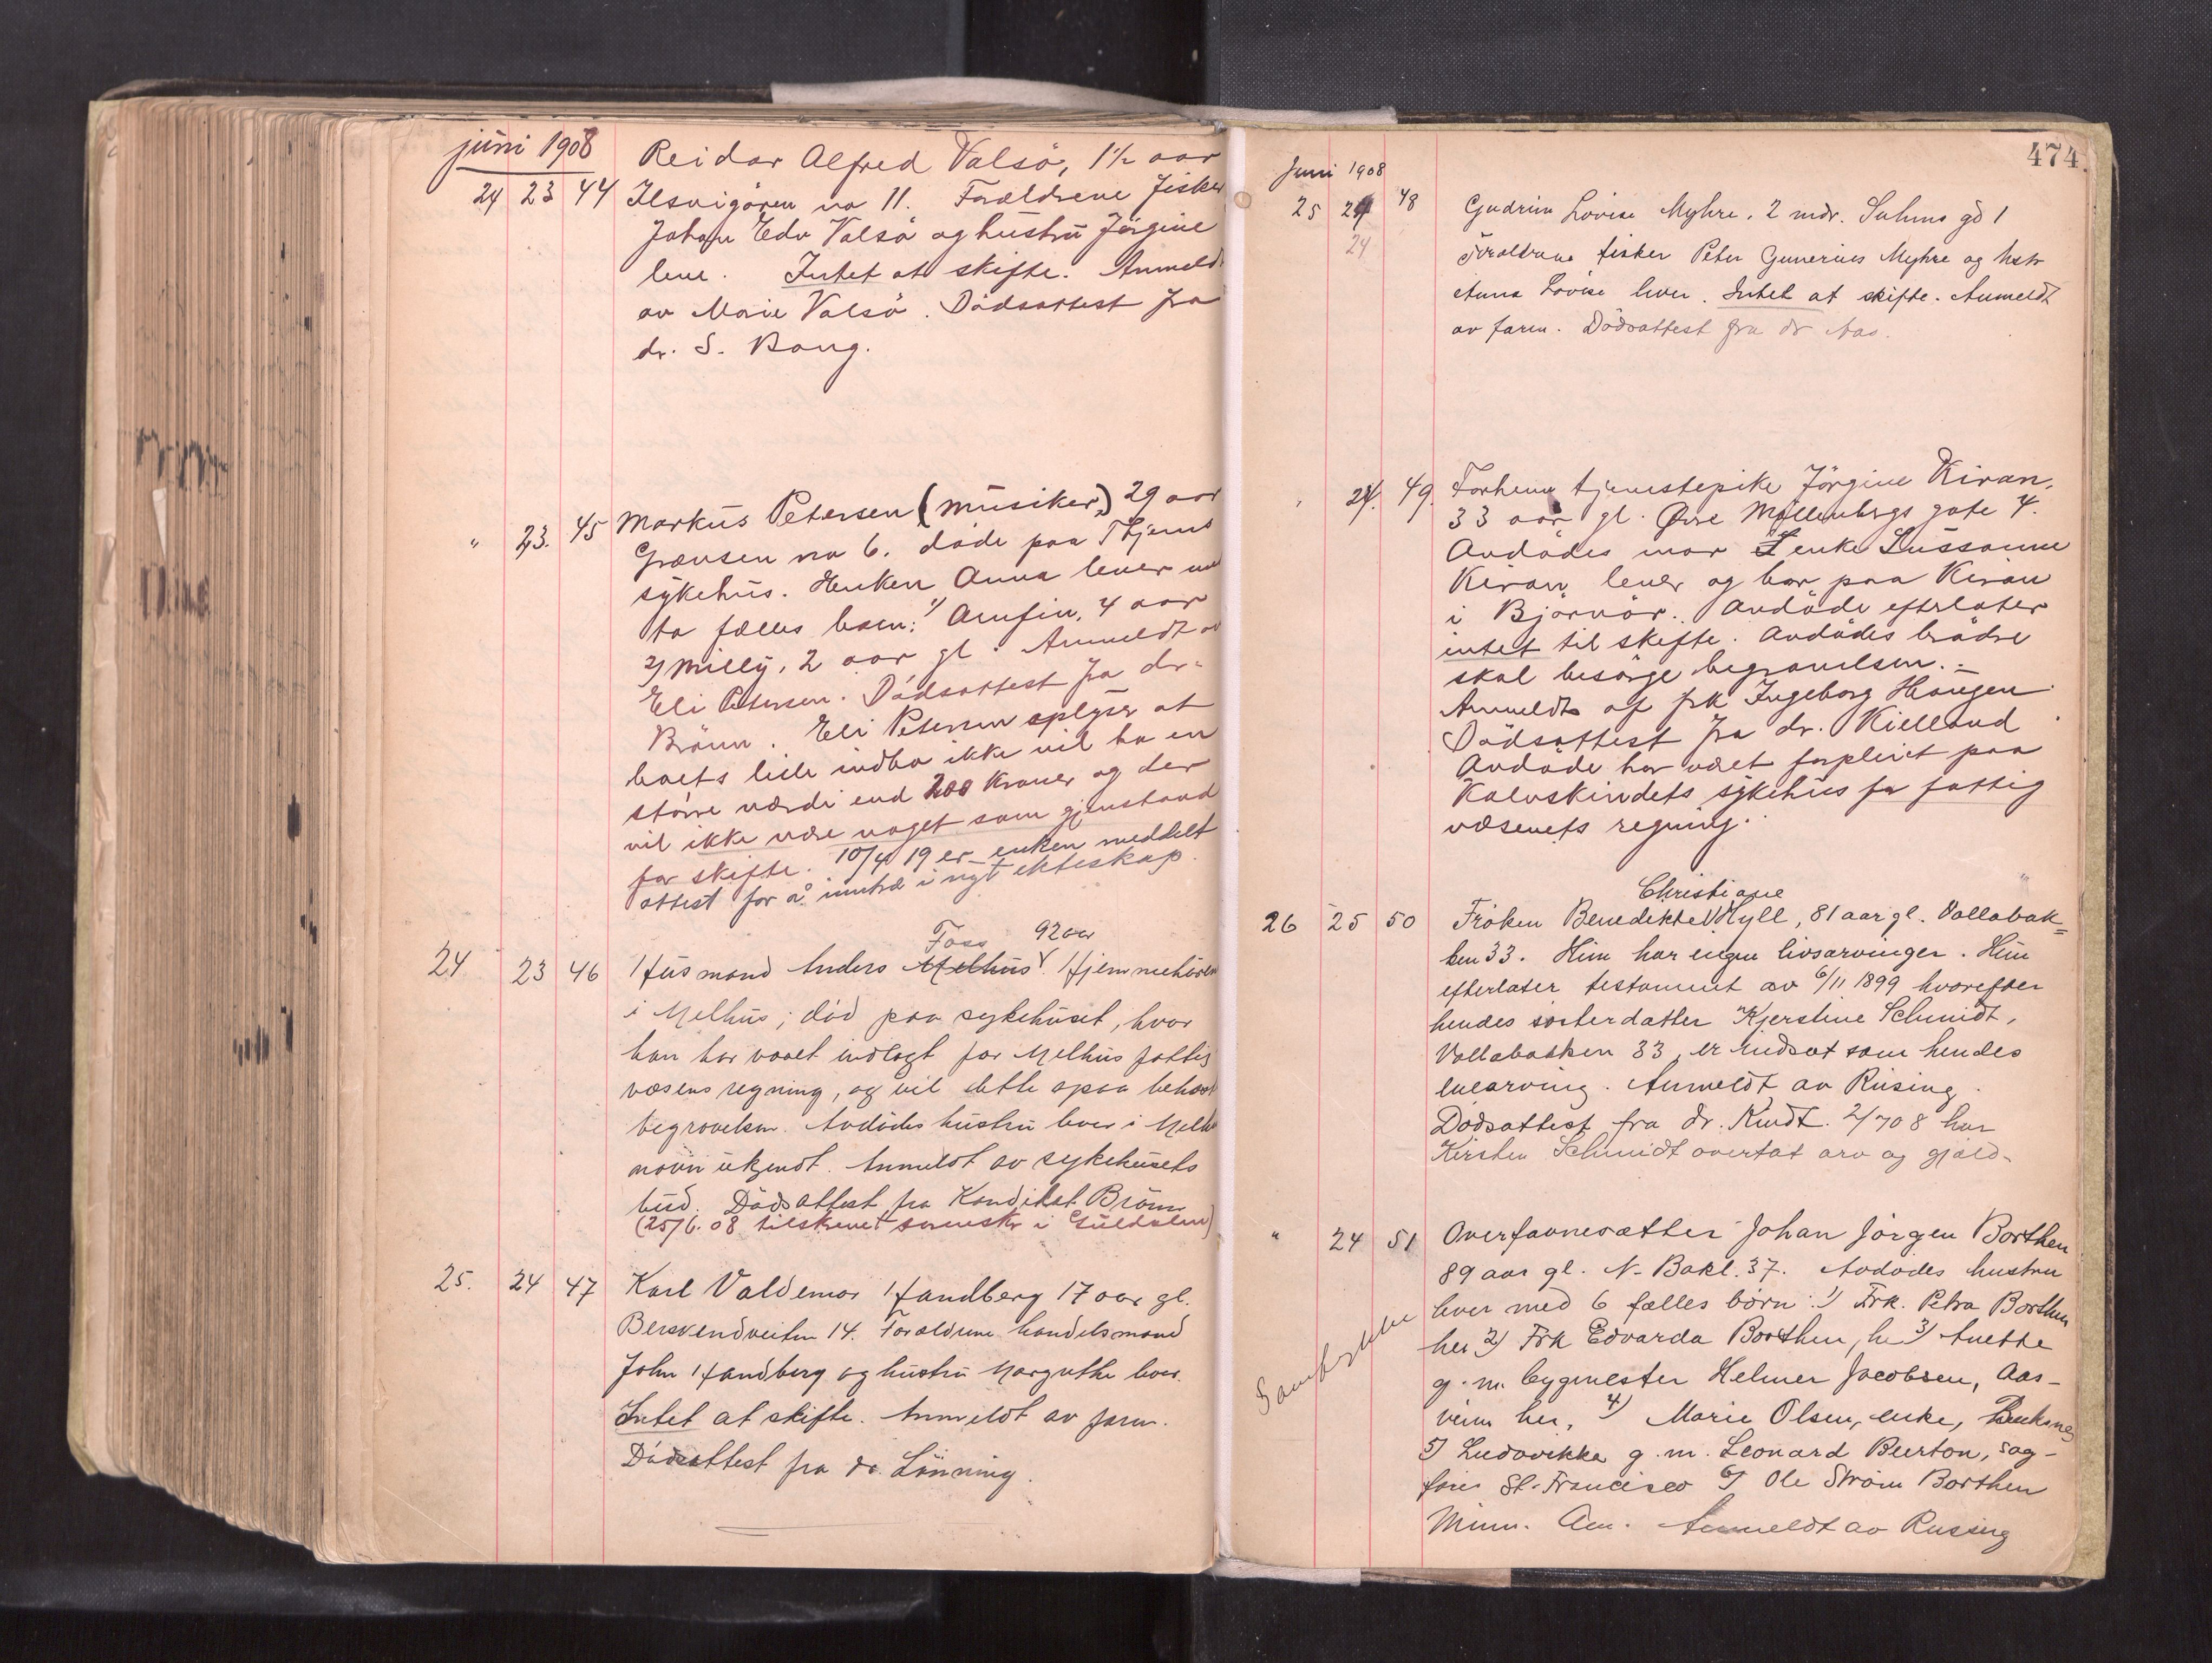 juni 1908
Reidar Alfred Valsö, 1½ aar
24 23 44 Ilsvigören no 11. Forældrene fisker
Johan Edv Valsö og hustru Jörgine
leve. Intet at skifte. Anmeldt
av Marie Valsö. Dödsattest fra
dr. S. Bang.
" 23. 45 Markus Petersen (musiker,) 29 aar
Grænsen no 6. döde paa Thjems
sykehus. Henken Anna lever med
to fælles barn: 1) Arnfin, 4 aar
2) Milly, 2 aar gl. Anmeldt av
Eli Petersen. Dödsattest fra dr.
Brönn. Eli Petersen oplyser at
boets lille indbo ikke vil ha en
större værdi end 200 Kroner og der
vil ikke være noget som gjenstand
for skifte. 10/4 19 er enken meddelt
attest for å inntræ i nyt ekteskap.
Foss 92 aar
24 23 46 Husmand Anders Melhus Hjemmehören
i Melhus; död paa sykehuset, hvor
han har været indlagt for Melhus fattig
væsens regning, og vil dette ogsaa bekoste
begravelsen. Avdödes hustru lever i Melhus
navn ukjendt. Anmeldt av sykehusets
bud. Dödsattest fra Kandidat Brönn
(25/6.08 tilskrevet sorenskr i Guldalen)
25. 24 47 Karl Valdemar Handberg 17 aar gl.
Bersvendveiten 14. Forældrene handelsmand
John Handberg og hustru Margrethe lever.
Intet at skifte. Anmeldt av farm.
Dödsattest fra dr. Lönning.
474
Juni 1908
25 24 48 Gudrun Lovise Myhre, 2 mdr. Suhms gd 1
24
Forældrene fisker Peter Gunerius Myhre og hstr
Anna Lovise lever. Intet at skifte. Anmeldt
av farm. Dödsattest fra dr Aas.
" 24. 49. Forhenv tjenestepike Jörgine Kiran,
33 aar gl. Övre Møllenbergs gate 4.
Avdödes mor enke Sussanne
Kiran lever og bor paa Kiran
i Björnör. Avdöde efterlater
intet til skifte. Avdödes brödre
skal besörge begravelsen.
Anmeldt af frk Ingeborg Haugen
Dödsattest fra dr. Kielland
Avdöde har været forpleiet paa
Kalvskindets sykehus for fattig
væsenets regning.
Christiane
26 25 50 Fröken Benedikte Hyll, 81 aar gl. Vollabak=
ken 33. Hun har ingen livsarvinger. Hun
efterlater testament av 6/11 1899 hvorefter
hendes sösterdatter Kjerstine Schmidt,
Vollabakken 33, er indsat som hendes
enearving. Anmeldt av Rusing.
Dödsattest fra dr. Kindt. 2/7 08 har
Kirsten Schmidt overtat arv og gjæld.
" 24 51 Overfavnesætter Johan Jörgen Borthen
89 aar gl. N. Bakl. 37. Avdödes hustru
lever med 6 fælles börn: 1) Frk. Petra Borthen
her 2) Frk Edvarda Borthen, her 3) Anette
Samfrskifte
g. m. bygmester Helmer Jacobsen, Aas-
veien her, 4) Marie Olsen, enke, Buksnes
5) Ludovikka g. m. Leonard Burton, sag-
förer St. Francisco 6) Ole Ström Borthen
Minn. Am. Anmeldt av Rusing